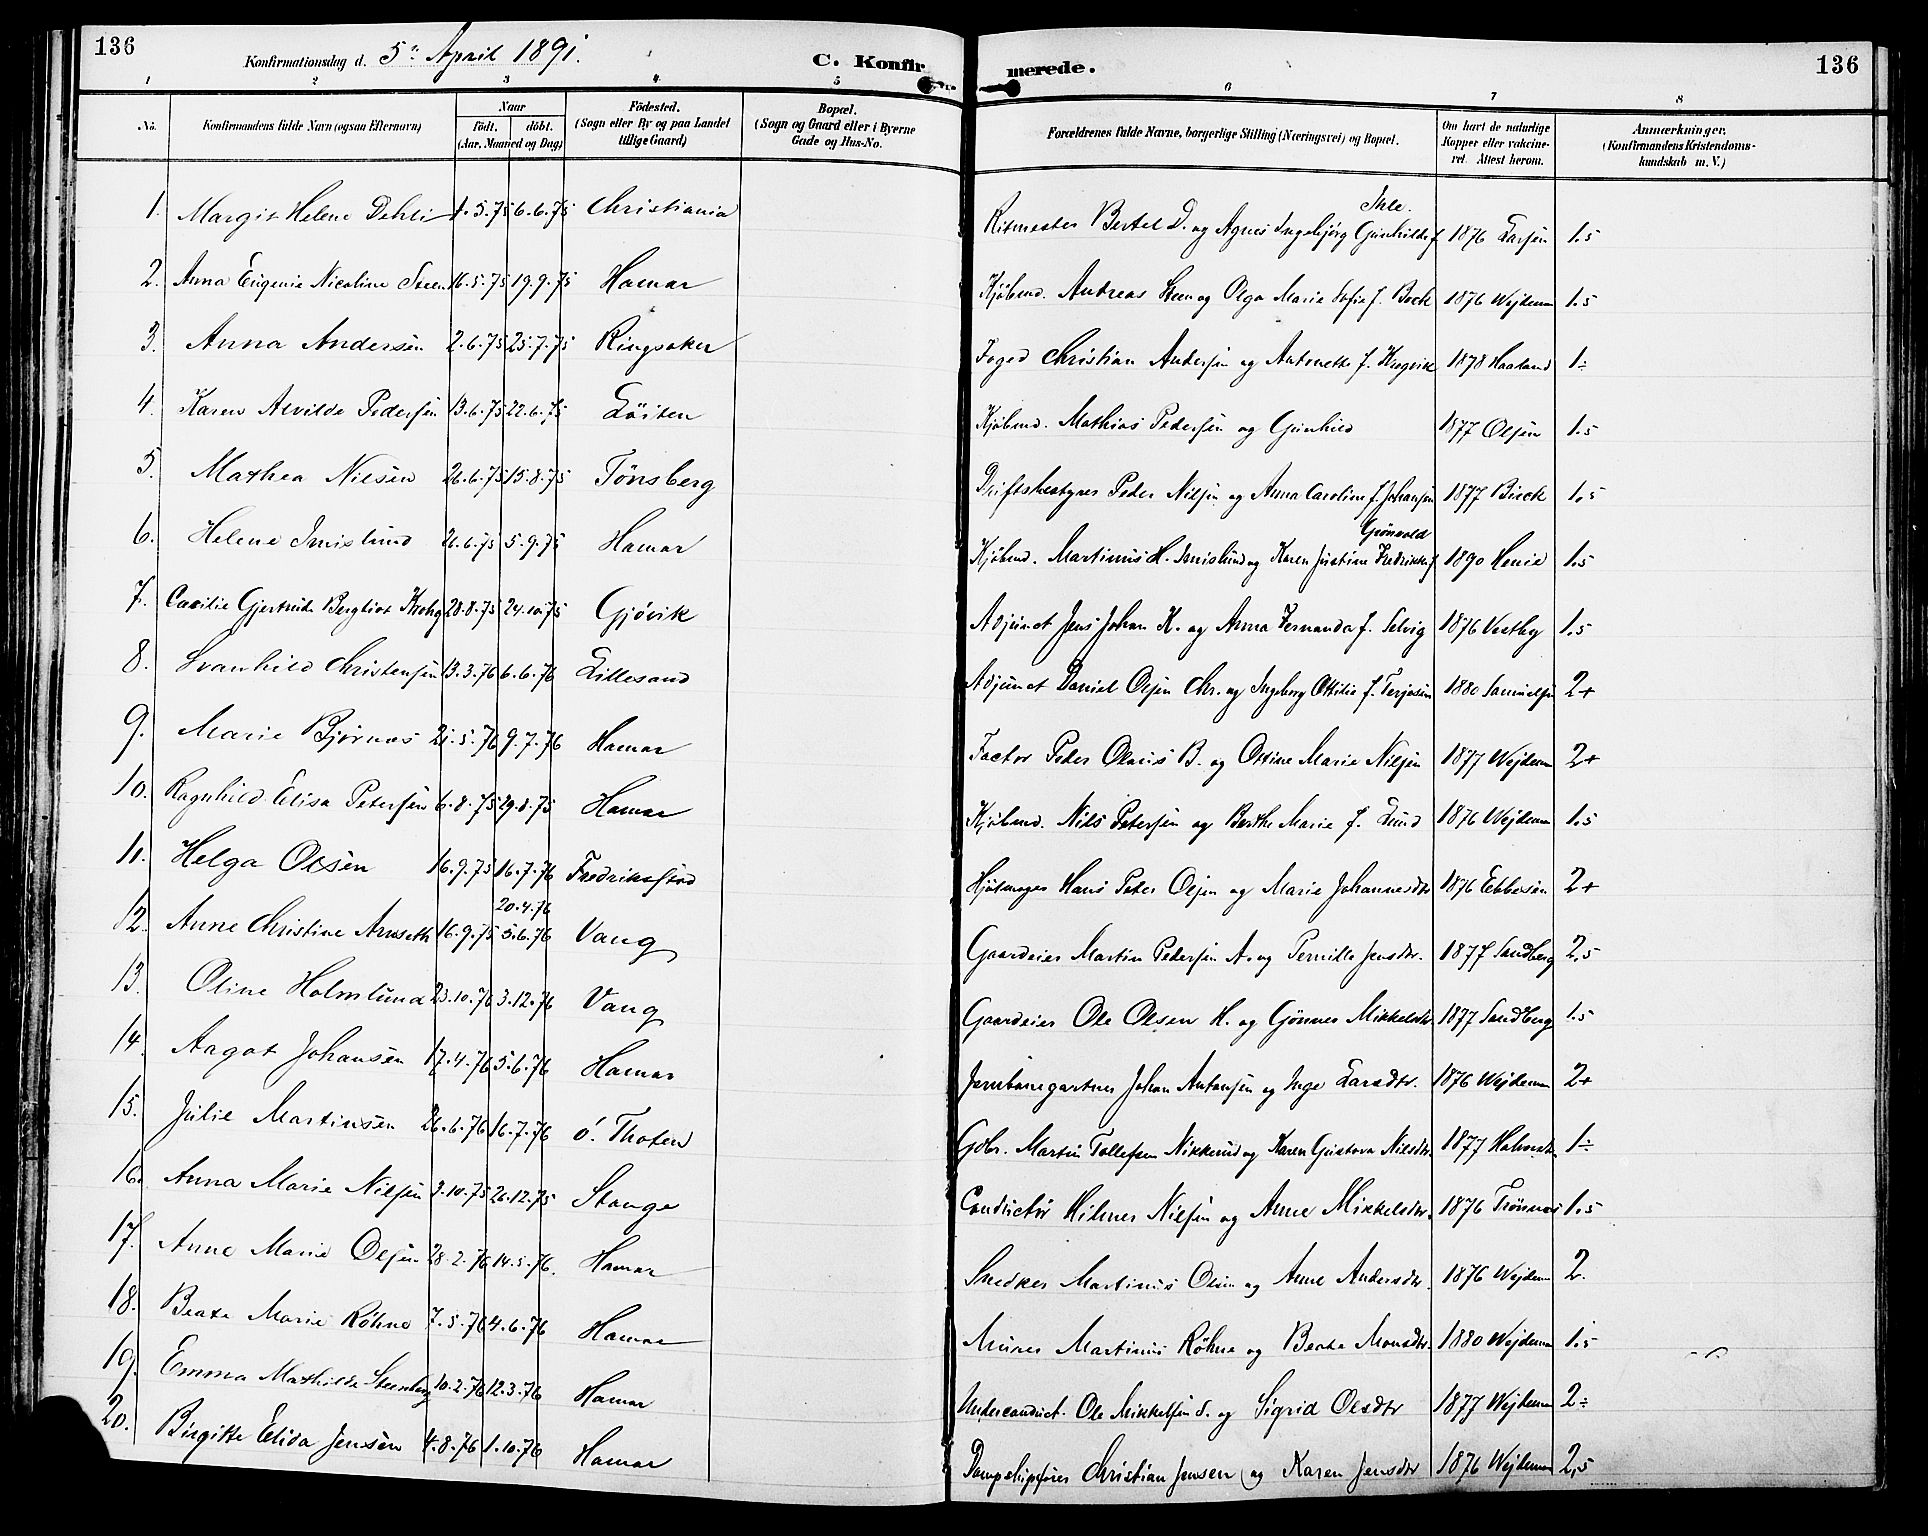 136
Konfirmationsdag d. 5te April 1891.
C. Konfirmerede.
136
1 2 3 4 5 6 7 8
No. Konfirmandens fulde Navn (ogsaa Efternavn) Naar født. døbt. (Aar, Maaned og Dag) Fødested. (Sogn eller By og paa Landet tillige Gaard) Bopæl. (Sogn og Gaard eller i Byerne Gade og Hus-No. Forældrenes fulde Navne, borgerlige Stilling (Næringsvei) og Bopæl. Om havt de naturlige Kopper eller vakcineret. Attest herom. Anmærkninger. (Konfirmandens Kristendomskundskab m. V.)
1. Margit Helene Dehli 1.5.75 6.6.75 Christiania Ritmester Bertel D. og Agnes Ingebjörg Gunhilde f. Ihle. 1876 Larsen 1.5
2. Anna Eugenie Nicoline Steen 16.5.75 19.9.75 Hamar Kjöbmd. Andreas Steen og Olga Marie Sofie f. Beck 1876 Wejdemn 1.5
3. Anna Andersen 2.6.75 25.7.75 Ringsaker Foged Christian Andersen og Antonette f. 1878 Haaland 1÷
4. Karen Alvilde Pedersen 13.6.75 22.6.75 Löiten Kjöbmd. Mathias Pedersen og Gunhild 1877 Olsen 1.5
5. Mathea Nilsen 26.6.75 15.8.75 Tönsberg Driftsbestyrer Peder Nilsen og Anna Caroline f. Johansen 1877 1.5
6. Helene Imislund 26.6.75 5.9.75 Hamar Kjöbmd. Martinus H. Imislund og Karen Justine Fredrikke f. Grönvold 1890 Henie 1.5
7. Cæcilie Gjertrude Bergliot Krohg 28.8.75 24.10.75 Gjövik Adjunct Jens Johan K. og Anna Fernanda f. Selvig 1876 Vestby 1.5
8. Svanhild Christensen 13.3.76 6.6.76 Lillesand Adjunct Daniel Olsen Chr. og Ingeborg Ottilie f. Terjesen 1880 Samuelsen 2+
9. Marie Bjørnås 21.5.76 9.7.76 Hamar Factor Peter Olaus B. og Ottine Marie Nilsen 1877 Wejdemn 2+
10. Ragnhild Elisa Petersen 6.8.75 29.8.75 Hamar Kjöbmd. Nils Petersen og Berthe Marie f. Lund 1876 Wejdemn 1.5
11. Helga Olsen 16.9.75 16.7.76 Fredriksstad Hans Peter Olsen og Marie Johannesdtr 1876 Ebbesen 2+
12. Anne Christine Arnseth 16.9.75 20.4.76 5.6.76 Vang Gaardeier Martin Pedersen A. og Pernille Jensdtr. 1877 Sandberg 2,5
13. Oline Holmlund 23.10.76 3.12.76 Vang Gaardeier Ole Olsen H. og Gönner Mikkelsdtr 1877 Sandberg 1.5
14. Aagot Johansen 17.4.76 5.6.76 Hamar Jernbanegartner Johan Antonsen og Inge Larsdtr. 1876 Wejdemn 2+
15. Julie Martinsen 26.6.76 16.7.76 ö. Thoten Gbr. Martin Tollefsen Nikkerud og Karen Gustava Nilsdtr. 1877 1÷
16. Anna Marie Nilsen 9.10.75 26.12.75 Stange Conductör Hilmer Nilsen og Anne Mikkelsdtr. 1876 Trönnes 1.5
17. Anne Marie Olsen 28.2.76 14.5.76. Hamar Snedker Martinus Olsen og Anne Andersdtr. 1876 Wejdemn 2.
18. Beate Marie Röhne 7.5.76 4.6.76 Hamar Murer Martinus Röhne og Beate Monsdtr. 1880 Wejdemn 1.5
19. Emma Mathilde Steenberg 10.2.76 12.3.76 Hamar Underconduct. Ole Mikkelsen S. og Sigrid Olsdtr 1877 Wejdemn 2÷
20. Birgitte Elida Jensen 4.8.76 1.10.76 Hamar Dampskipsförer Christian Jensen og Karen Jensdtr 1876 Wejdemn 2,5